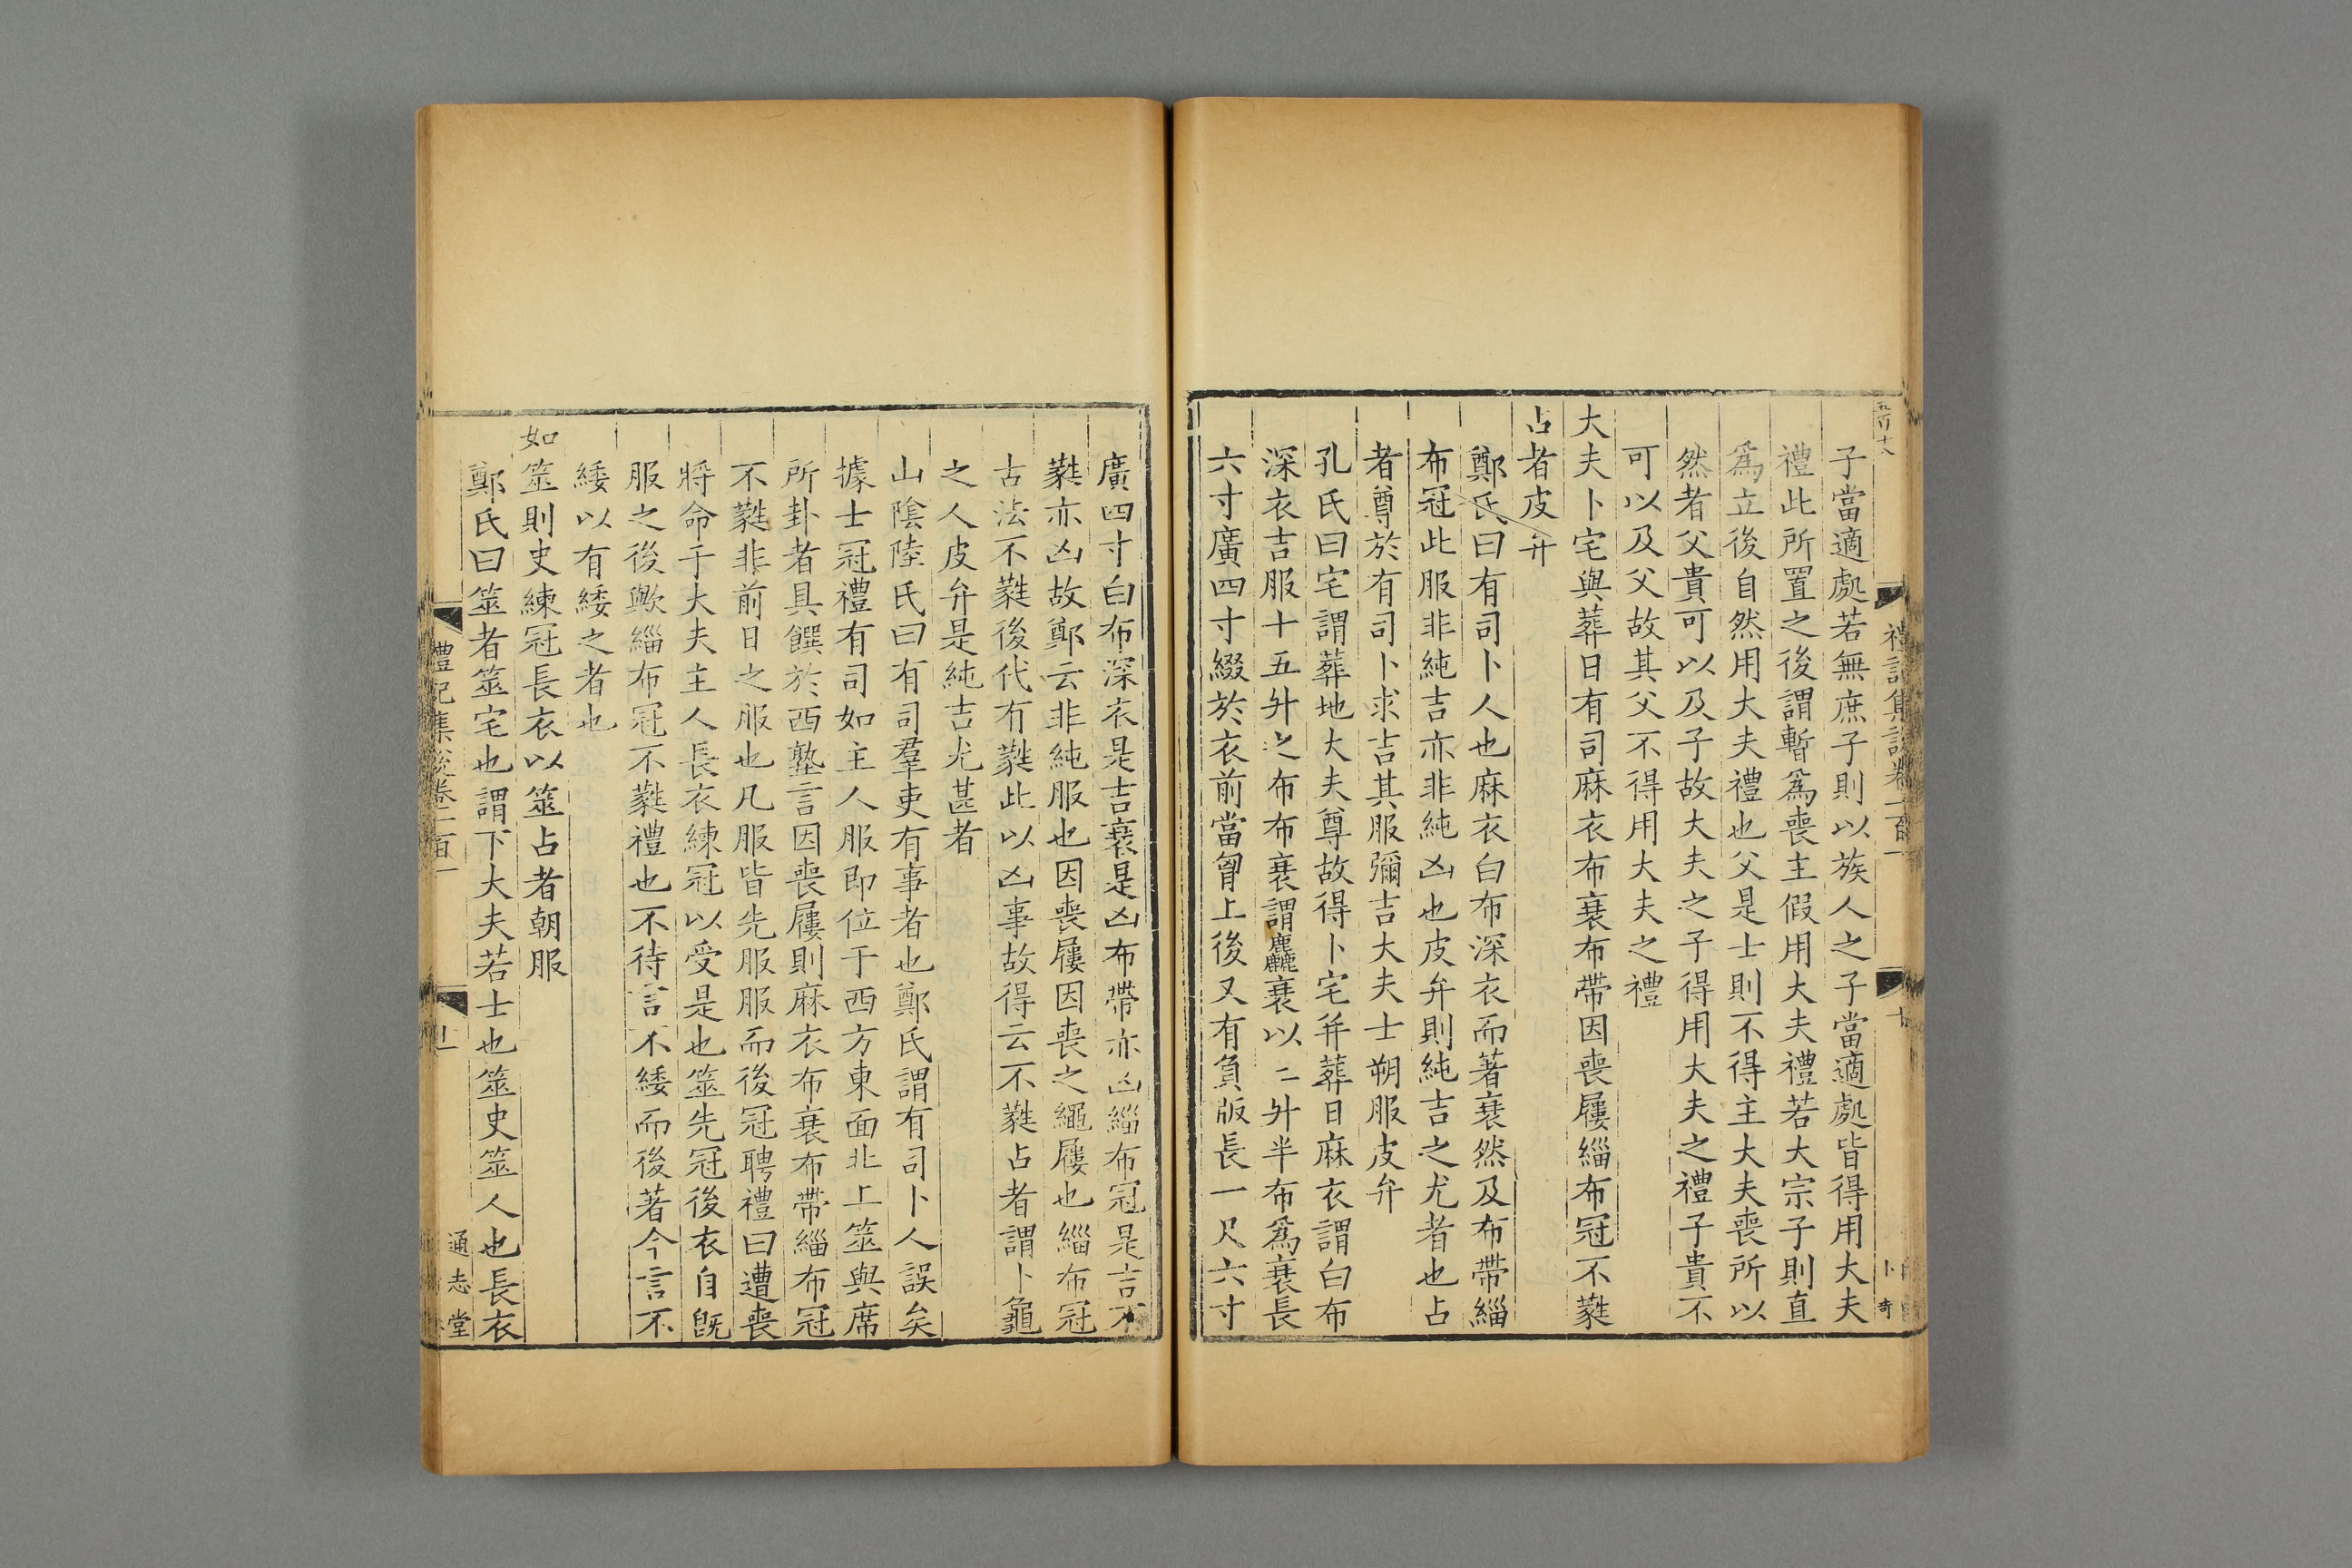 五百十六
禮記集說卷一百一
十
卜奇
子當適處若無庶子則以族人之子當適處皆得用大夫
禮此所置之後謂暫爲喪主假用大夫禮若大宗子則直
爲立後自然用大夫禮也父是士則不得主大夫喪所以
然者父貴可以及子故大夫之子得用大夫之禮子貴不
可以及父故其父不得用大夫之禮
大夫卜宅與葬日有司麻衣布衰布帶因喪屨緇布冠不蕤
占者皮弁
鄭氏曰有司卜人也麻衣白布深衣而著衰然及布帶緇
布冠此服非純吉亦非純凶也皮弁則純吉之尤者也占
者尊於有司卜求吉其服彌吉大夫士朔服皮弁
孔氏曰宅謂葬地大夫尊故得卜宅并葬日麻衣謂白布
深衣吉服十五升之布布衰謂麤衰以三升半布爲衰長
六寸廣四寸綴於衣前當胷上後又有負版長一尺六寸
廣四寸白布深衣是吉衰是凶布帶亦凶緇布冠是吉不
蕤亦凶故鄭云非純服也因喪屨因喪之繩屨也緇布冠
古法不蕤後代有蕤此以凶事故得云不蕤占者謂卜龜
之人皮弁是純吉尤甚者
山陰陸氏曰有司羣吏有事者也鄭氏謂有司卜人誤矣
據士冠禮有司如主人服即位于西方東面北上筮與席
所卦者具饌於西塾言因喪屨則麻衣布衰布帶緇布冠
不蕤非前日之服也凡服皆先服服而後冠聘禮曰遭喪
將命于大夫主人長衣練冠以受是也筮先冠後衣自旣
服之後歟緇布冠不蕤禮也不待言不緌而後著今言不
緌以有緌之者也
如筮則史練冠長衣以筮占者朝服
鄭氏曰筮者筮宅也謂下大夫若士也筮史筮人也長衣
禮記集說卷一百一
十一
通志堂